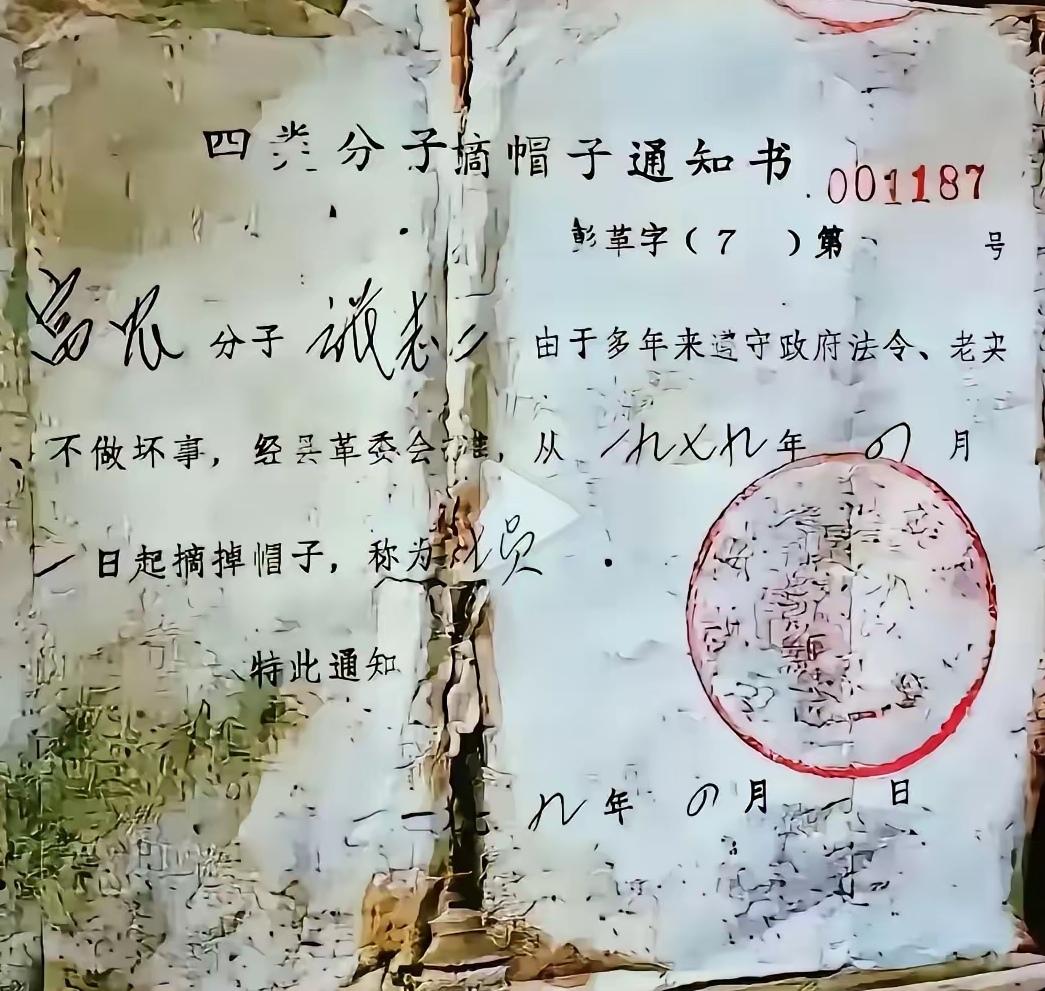 四类分子摘帽子通知书
001187
彭革字(7 )第 号
富农 分子 志 由于多年来遵守政府法令、老实
、不做坏事,经县革委会批准,从 一九七九年 四 月
一日起摘掉帽子,称为 社员 .
特此通知
一九七九年 四月 一 日